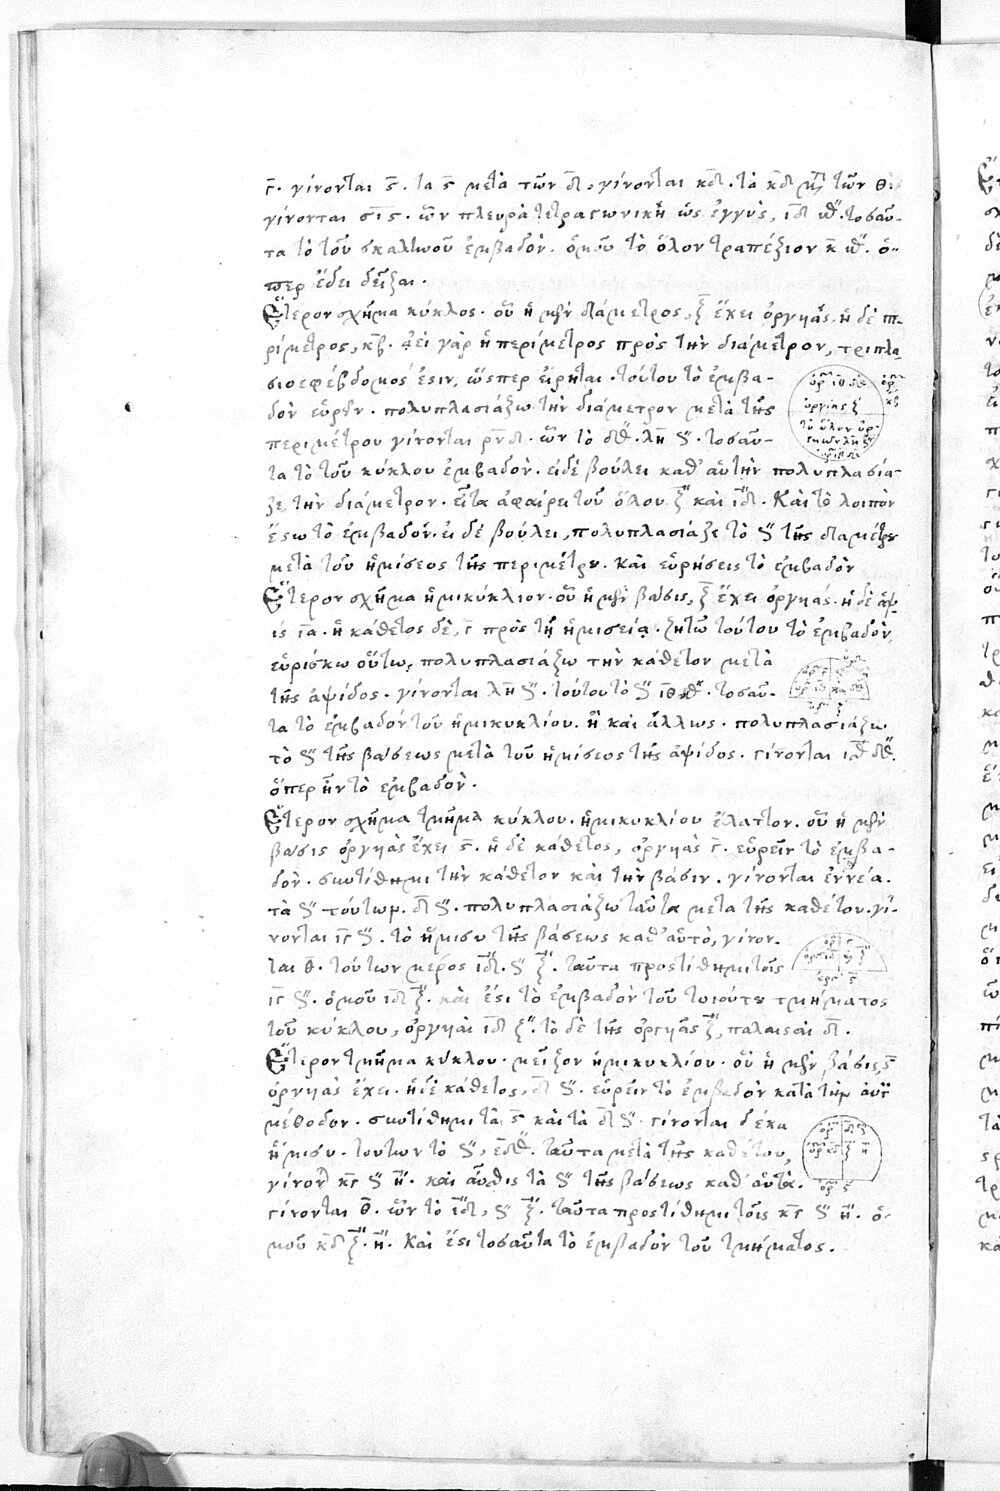 γ̄. γίνονται ς̄. τα ς̄ μετὰ τῶν δ̄. γίνονται κ̄δ̄. τὰ κ̄δ̄ μετὰ τῶν θ̄
γίνονται σ̄ῑς̄. ὧν πλευρὰ τετραγωνικὴ ὡς ἐγγὺς, ῑδ̄ ω̋. τοσαῦ-
τα τὸ τοῦ σκαληνοῦ ἐμβαδὸν. ὁμοῦ τὸ ὅλον τραπέζιον κ̄ ω̋. ὅ-
περ ἔδει δεῖξαι.
Ἕτερον σχῆμα κύκλος. οὗ ἡ μὲν διάμετρος, ζ̄ ἔχει ὀργυιάς. ἡ δὲ πε-
ρίμετρος, κ̄β̄. ἀεὶ γὰρ ἡ περίμετρος πρὸς τὴν διάμετρον, τριπλα-
σιοεφέβδομος ἐστιν, ὥσπερ εἴρηται. τούτου τὸ ἐμβα-
δὸν εὑρεῖν. πολυπλασιάζω τὴν διάμετρον μετὰ τῆς
περιμέτρου γίνονται ρ̄ν̄δ̄. ὧν τὸ δ̋. λ̄η̄ 𐅵. τοσαῦ-
τα τὸ τοῦ κύκλου ἐμβαδὸν. εἰ δὲ βούλει καθ' αὑτὴν πολυπλασία-
ζε τὴν διάμετρον. εἶτα ἀφαίρει τοῦ ὅλου ζ̋ καὶ ι̋δ̋. Καὶ τὸ λοιπὸν
ἔστω τὸ ἐμβαδόν. εἰ δὲ βούλει, πολυπλασίαζε τὸ 𐅵 τῆς διαμέτρου
μετὰ τοῦ ἡμίσεος τῆς περιμέτρου. καὶ εὑρήσεις τὸ ἐμβαδὸν
Ἕτερον σχῆμα ἡμικύκλιον. οὗ ἡ μὲν βάσις, ζ̄ ἔχει ὀργυιάς. ἡ δὲ ἁψ-
ὶς ῑᾱ. ἡ κάθετος δὲ, γ̄ πρὸς τῇ ἡμισείᾳ. ζητῶ τούτου τὸ ἐμβαδὸν,
εὑρίσκω οὕτω, πολυπλασιάζω τὴν κάθετον μετὰ
τῆς ἁψίδος. γίνονται λ̄η̄ 𐅵. τούτου τὸ 𐅵 ῑθ̄ δ̋. τοσαῦ-
τα τὸ ἐμβαδόν τοῦ ἡμικυκλίου. ἢ καὶ ἄλλως. πολυπλασιάζω
τὸ 𐅵 τῆς βάσεως μετὰ τοῦ ἡμίσεος τῆς ἁψίδος. γίνονται ῑθ̄ δ̋.
ὅπερ ἦν τὸ ἐμβαδὸν.
Ἕτερον σχῆμα τμῆμα κύκλου. ἡμικυκλίου ἔλαττον. οὗ ἡ μὲν
βάσις ὀργυιὰς ἔχει ς̄. ἡ δὲ κάθετος, ὀργυιὰς γ̄. εὑρεῖν τὸ ἐμβα-
δὸν. συντίθημι τὴν κάθετον καὶ τὴν βάσιν. γίνονται ἐννέα.
τὰ 𐅵 τούτων. δ̄ 𐅵. πολυπλασιάζω ταῦτα μετα τῆς καθέτου. γί-
νονται ῑγ̄ 𐅵. τὸ ἥμισυ τῆς βάσεως καθ' αὑτὸ, γίνον-
ται θ̄. τούτων μέρος ι̋δ̋. 𐅵 ζ̋. ταῦτα προστίθημι τοῖς
ῑγ̄ 𐅵. ὁμοῦ ῑδ̄ ζ̋. καὶ ἔστι τὸ ἐμβαδὸν τοῦ τοιούτου τμήματος
τοῦ κύκλου, ὀργυιαὶ ῑδ̄ ζ̋. τὸ δὲ τῆς ὀργυιᾶς ζ̋, παλαισταὶ δ̄.
Ἕτερον τμῆμα κύκλου. μεῖζον ἡμικυκλίου. οὗ ἡ μὲν βάσις, ς̄
ὀργυιὰς ἔχει. ἡ δὲ κάθετος, δ̄ 𐅵. εὑρεῖν τὸ ἐμβαδὸν κατὰ τὴν αὐτὴν
μέθοδον. συντίθημι τὰ ς̄ καὶ τὰ δ̄ 𐅵. γίνονται δέκα
ἥμισυ. τούτων τὸ 𐅵, ε̄ δ̋. ταῦτα μετὰ τῆς καθέτου,
γίνον κ̄γ̄ 𐅵 η̋. καὶ αὖθις τὰ 𐅵 τῆς βάσεως καθ' αὑτὰ.
γίνονται θ̄. ὧν τὸ ι̋δ̋, 𐅵 ζ̋. ταῦτα προστίθημι τοῖς κ̄γ̄ 𐅵 η̋. ὁ-
μοῦ κ̄δ̄ ζ̋. η̋. Καὶ ἔστι τοσαῦτα τὸ ἐμβαδὸν τοῦ τμήματος.